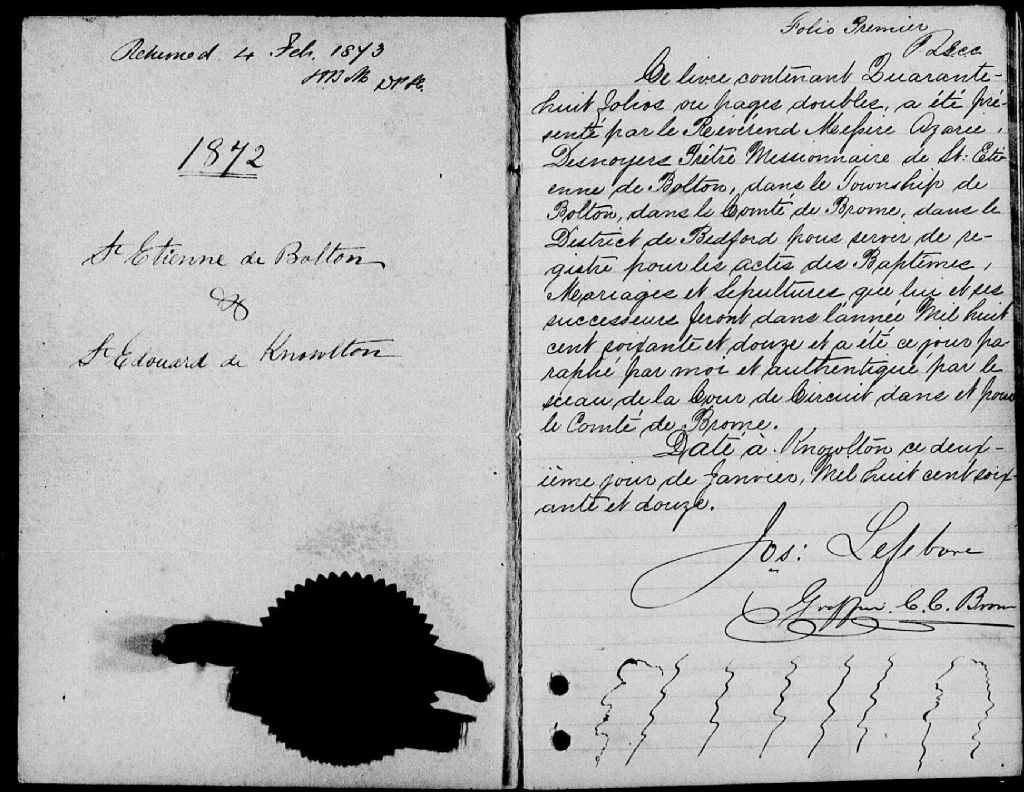 Returned 4 Feb. 1873
1872
St Etienne de Bolton
&
St Edouard de Knowlton
Folio Premier
Ce livre contenant Quarante-
huit folios ou pages doubles, a été pré-
senté par le Révérend Messire Azarie,
Desnoyers Prêtre Missionnaire de St: Eti-
enne de Bolton, dans le Township de
Bolton, dans le Comté de Brome, dans le
District de Bedford pour servir de re-
gistre pour les actes des Baptêmes,
Mariages et Sépultures que lui et ses
successeurs feront dans l'année Mil huit
cent soixante et douze et a été ce jour pa-
raphé par moi et authentiqué par le
sceau de la Cour de Circuit dans et pour
le Comté de Brome.
Daté à Knowlton ce deux-
ième jour de Janvier, Mil huit cent soix-
ante et douze.
Jos: Lefebvre
Greffier C. C. Brome